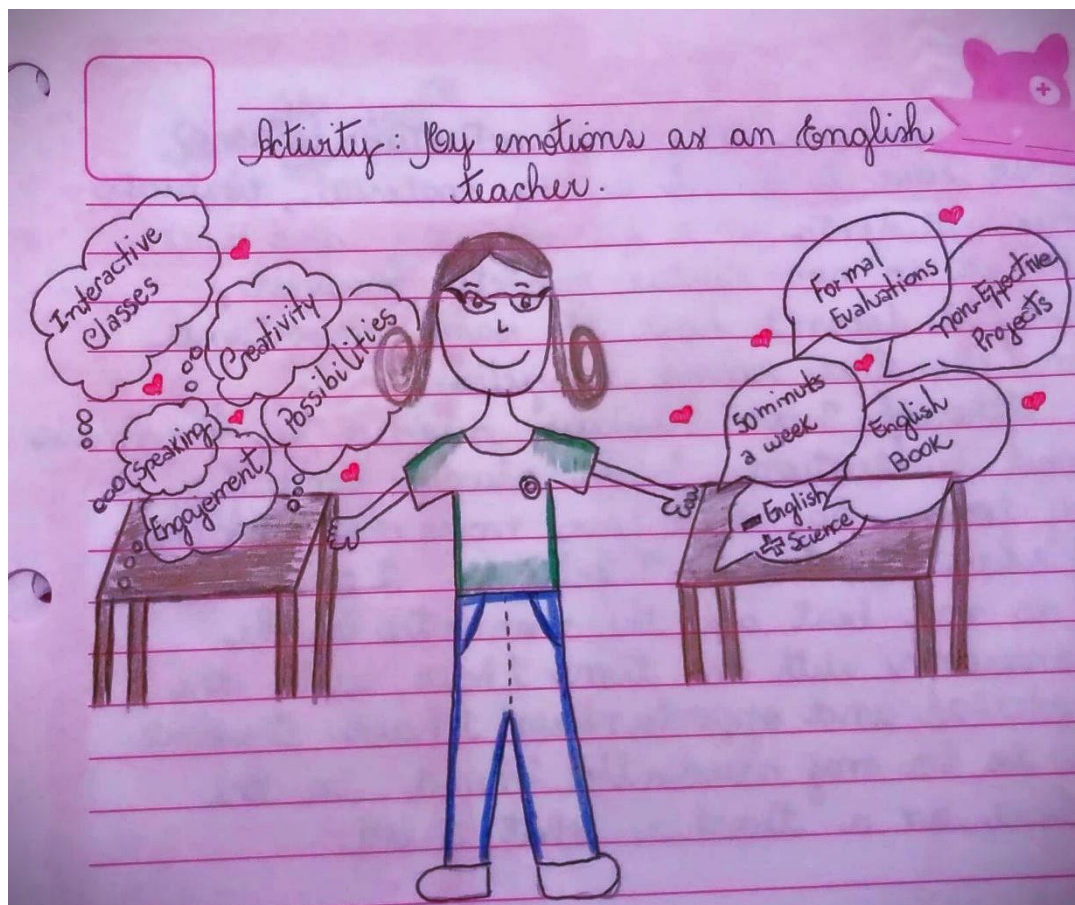 Activity: My emotions as an English
teacher.
Interactive
Classes
Creativity
Possibilities
Speaking
Engagement
Formal
Evaluations
non-Effective
Projects
50 minuts
a week
English
Book
- English
+ Science